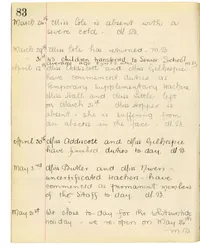 83
March 24th Miss Cole is absent with a
severe cold.
March 29th Miss Cole has returned.
31st children transferred to Senior School
April have
commenced duties as
temporary supplementary teachers
Miss Scott and Miss left
on March 31st. Miss is
absent: she is suffering from
an abscess in the face.
April 30th Miss and Miss
have finished duties to day.
May 2nd Miss Butler and Miss
uncertificated teachers have
commenced as permanent members
of the staff to day.
May 31st We close to day for the Whitsuntide
holiday - we re-open on May